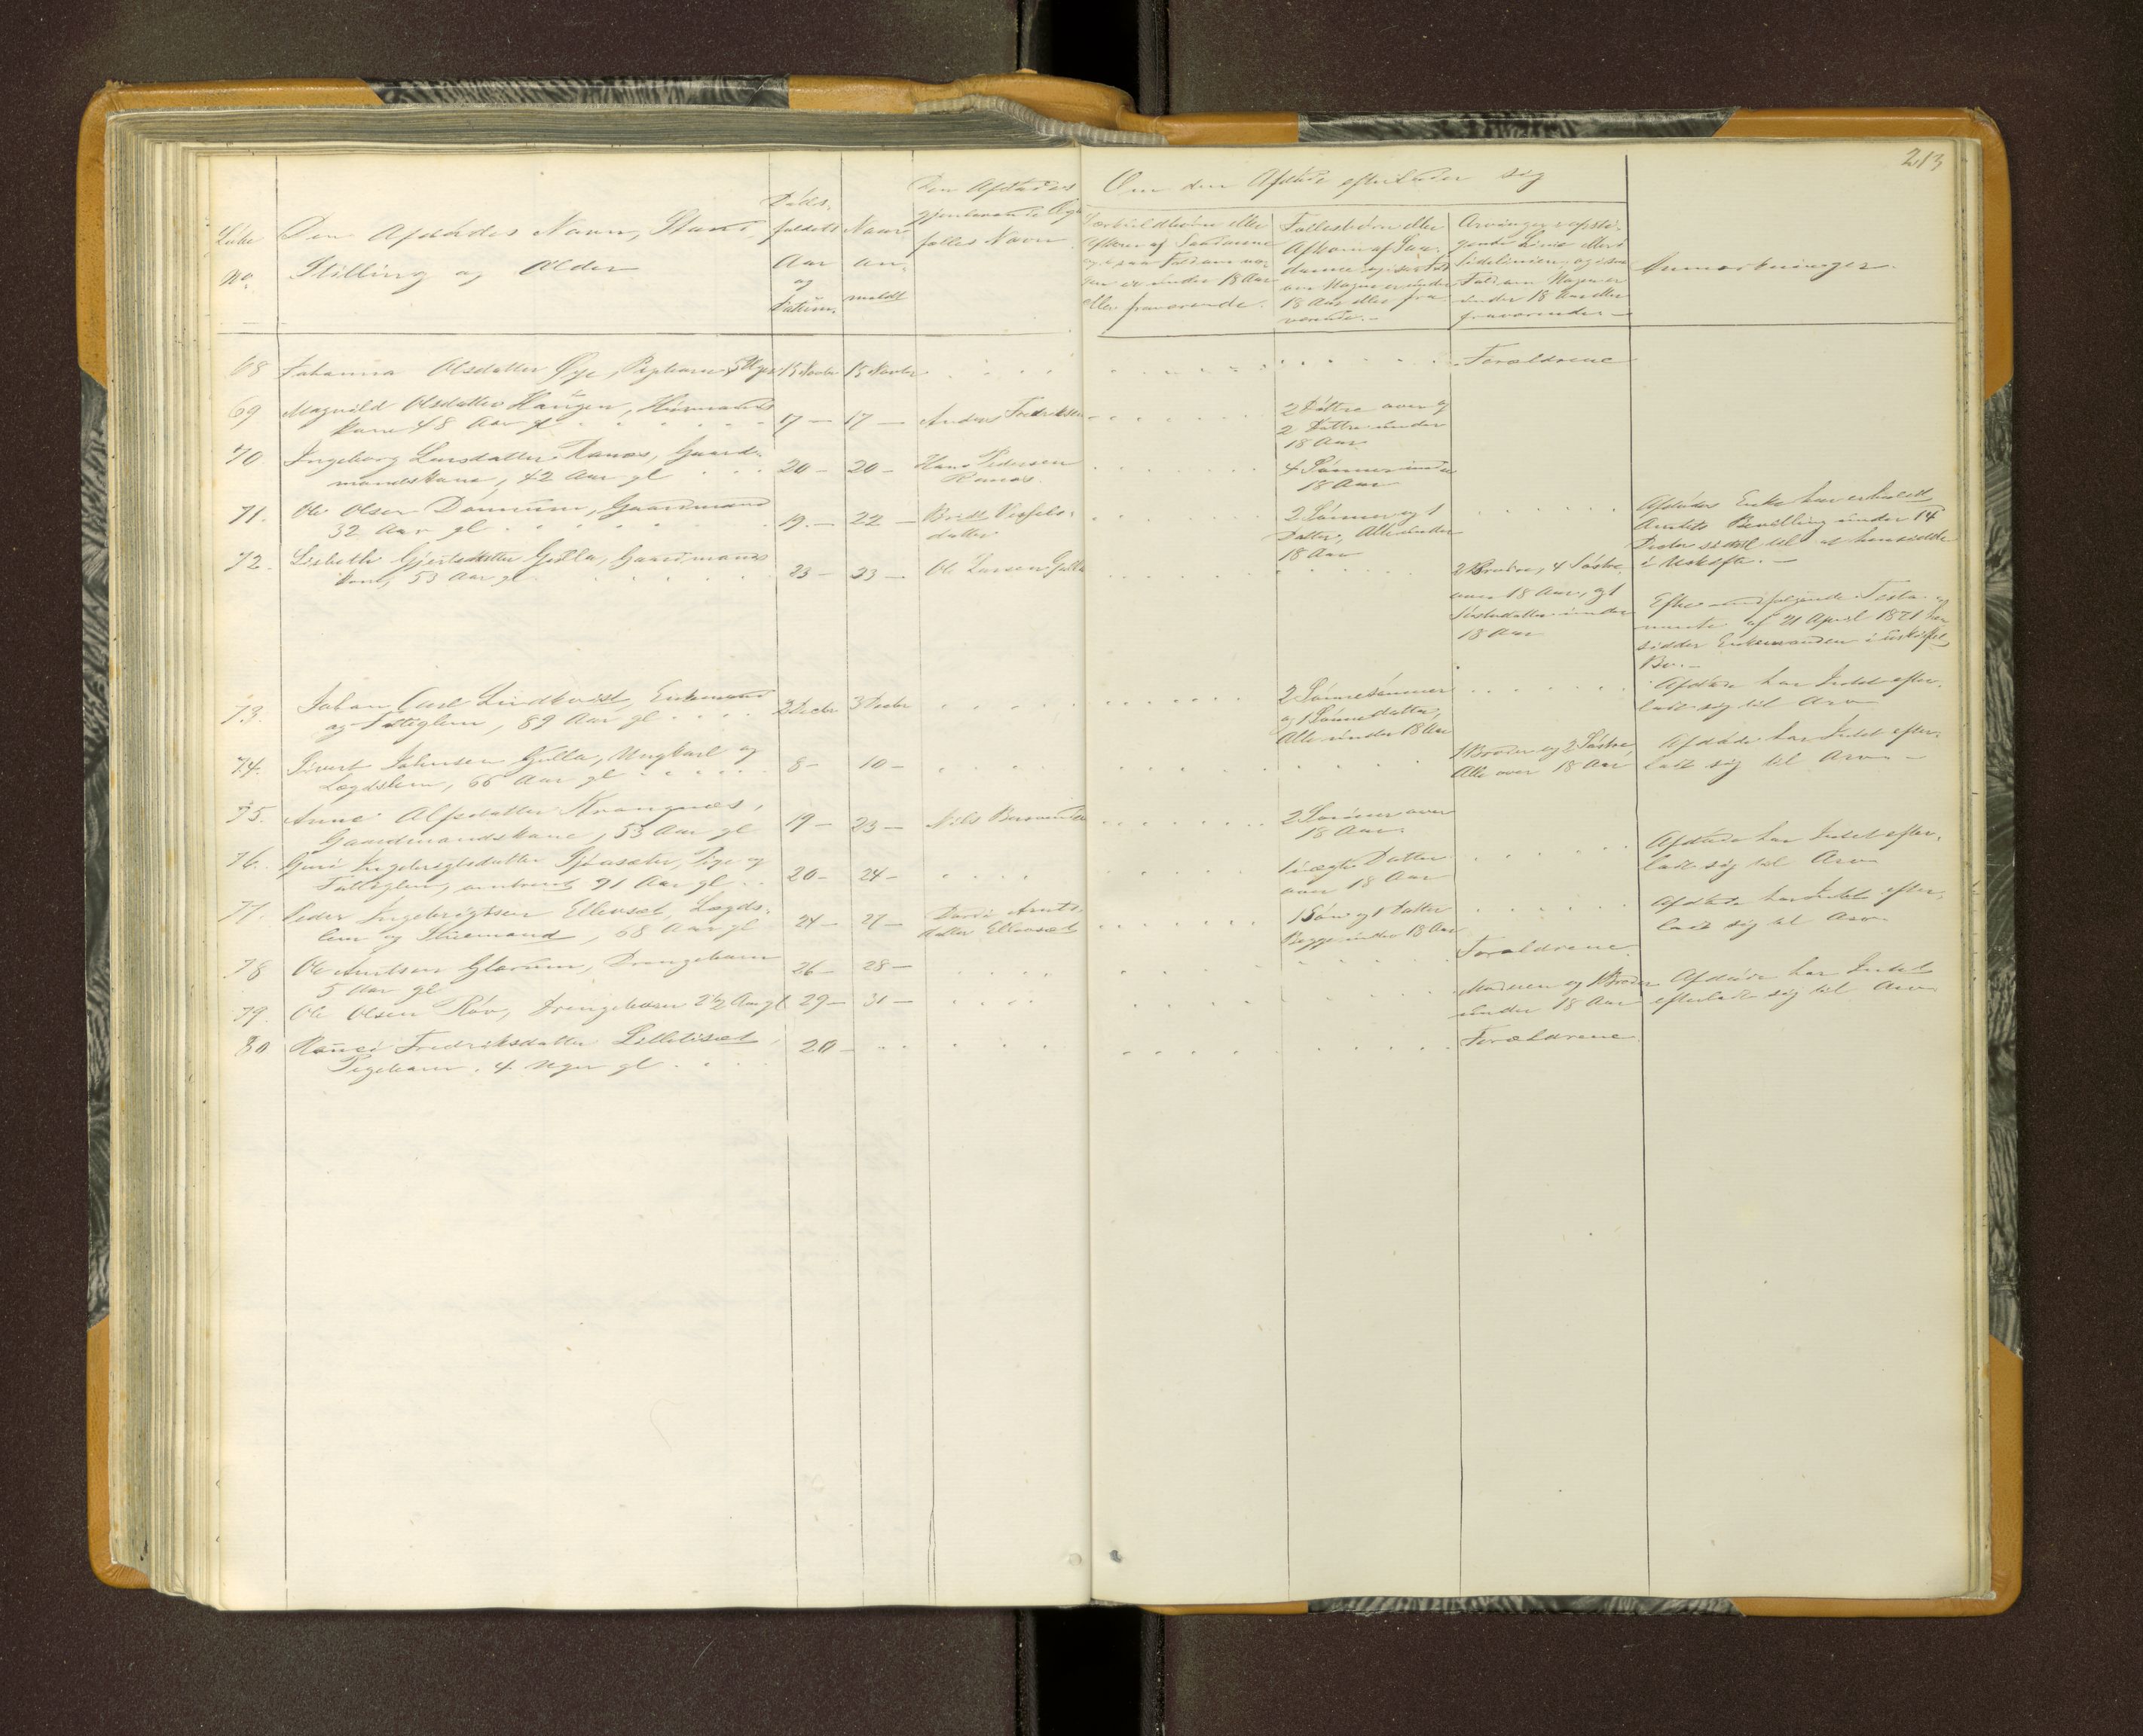 213
Løbe
No.
Den Afdødes Navn, Stand,
Stilling og Alder
Døds-
faldets
Aar
og
Datum.
Naar
an-
meldt
Den Afdødes
gjenlevende Ægte-
fælles Navn
Om den Afdøde efterlader sig
Særkuldbørn eller
Afkom af Saadanne
og i saa Fald om no-
gen er under 18 Aar
eller fraværende.
Fællesbørn eller
Afkom af Saa-
danne og i saa Fald
om Nogen er under
18 Aar eller fra-
værende.-
Arvinger i opsti-
gende Linie eller i
Sidelinien, og i saa
Fald om Nogen er
under 18 Aar eller
fraværende.-
Anmærkninger.
68 Johanna Olsdatter Øye, Pigebarn, 5 Uger 15 Novbr 15 Novbr Forældrene
69 Magnild Olsdatter Haugen, Huusmands
kone 48 Aar gl 17 — 17 — Anders Fredriksen 2 Døttre over og
2 Døttre under
18 Aar
70 Ingeborg Larsdatter Ranæs, Gaard-
mandskone, 42 Aar gl 20 — 20 — Hans Pedersen
Ranæs. 4 Sønner under
18 Aar
71. Ole Olsen Dønnum, Gaardmand
32 Aar gl 19. — 22 — datter 2 Sønner og 1
Datter, Alle under
18 Aar Afdødes Enke har erholdt
Amtets Bevilling under 14
Decbr sidstl til at hensidde
i Uskifte. —
72. Lisbeth Gjertsdatter Gylla, Gaardmands
kone, 53 Aar gl 23 — 23 — Ole Larsen Gylla 2 Brødre, 4 Søstre
over 18 Aar, og 1
Søsterdatter under
18 Aar Efter medfølgende Testa-
mente af 21 April 1871 hen
sidder Enkemanden i uskiftet
Bo. —
73. Johan Carl Lindkvist, Enkemand
og Fattiglem, 89 Aar gl 2 Decbr 3 Decbr 2 Sønnesønner
og 1 Sønnedatter,
Alle under 18 Aar Afdøde har Intet efter-
ladt sig til Arv
74. Sivert Johnsen Gylla, Ungkarl og
Lægdslem, 66 Aar gl 8 — 10 — 1 Broder og 2 Søstre,
Alle over 18 Aar Afdøde har Intet efter-
ladt sig til Arv —
75. Anne Alfsdatter Kvangnæs,
Gaardmandskone, 53 Aar gl 19 — 23 — Nils 2 Sønner over
18 Aar.
76. Guri Ingebrigtsdatter Pige og
Fattiglem, omtrent 91 Aar gl 20 — 24 — 1 uægte Datter
over 18 Aar Afdøde har Intet efter-
ladt sig til Arv
77. Peder Ingebrigtsen Ellevset, Lægds-
lem og 68 Aar gl 24 — 27 — Arnts-
datter Ellevset 1 Søn og 1 Datter
Begge under 18 Aar Afdøde har Intet efter-
ladt sig til Arv
78 Ole Arntsen Glærum, Drengebarn
5 Aar gl 26 — 28 — Forældrene
79. Ole Olsen Røv, Drengebarn 2 1/2 Aar gl 29 — 31 — Moderen og 1 Broder
under 18 Aar Afdøde har Intet
efterladt sig til Arv
80 Fredriksdatter
Pigebarn, 4 Uger gl 20 — Forældrene